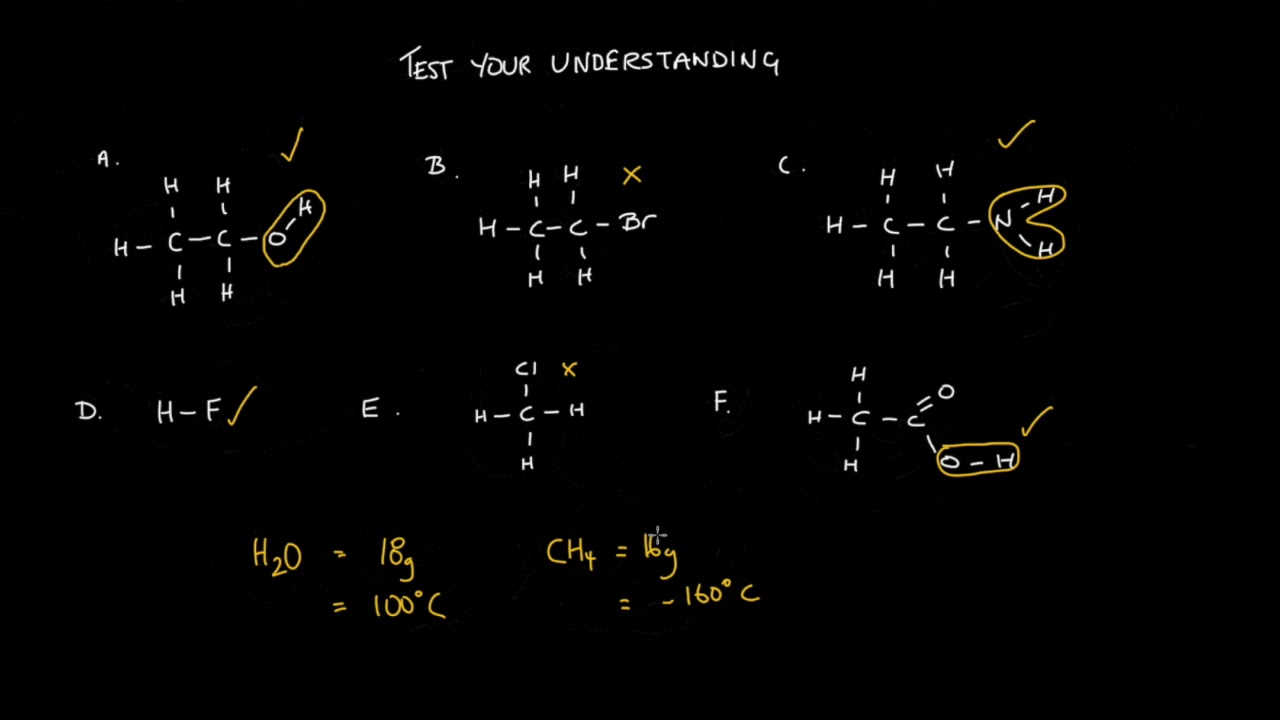 TEST YOUR UNDERSTANDING
A. ✓
H H H
H – C – C – O
H H
B. x
H H
H – C – C – Br
H H
C. ✓
H H H
H – C – C – N
H H H
D. H – F ✓
E. Cl x
H – C – H
H
F. H O ✓
H – C – C
H O – H
H₂O = 18g
= 100°C
CH₄ = 16g
= -160°C